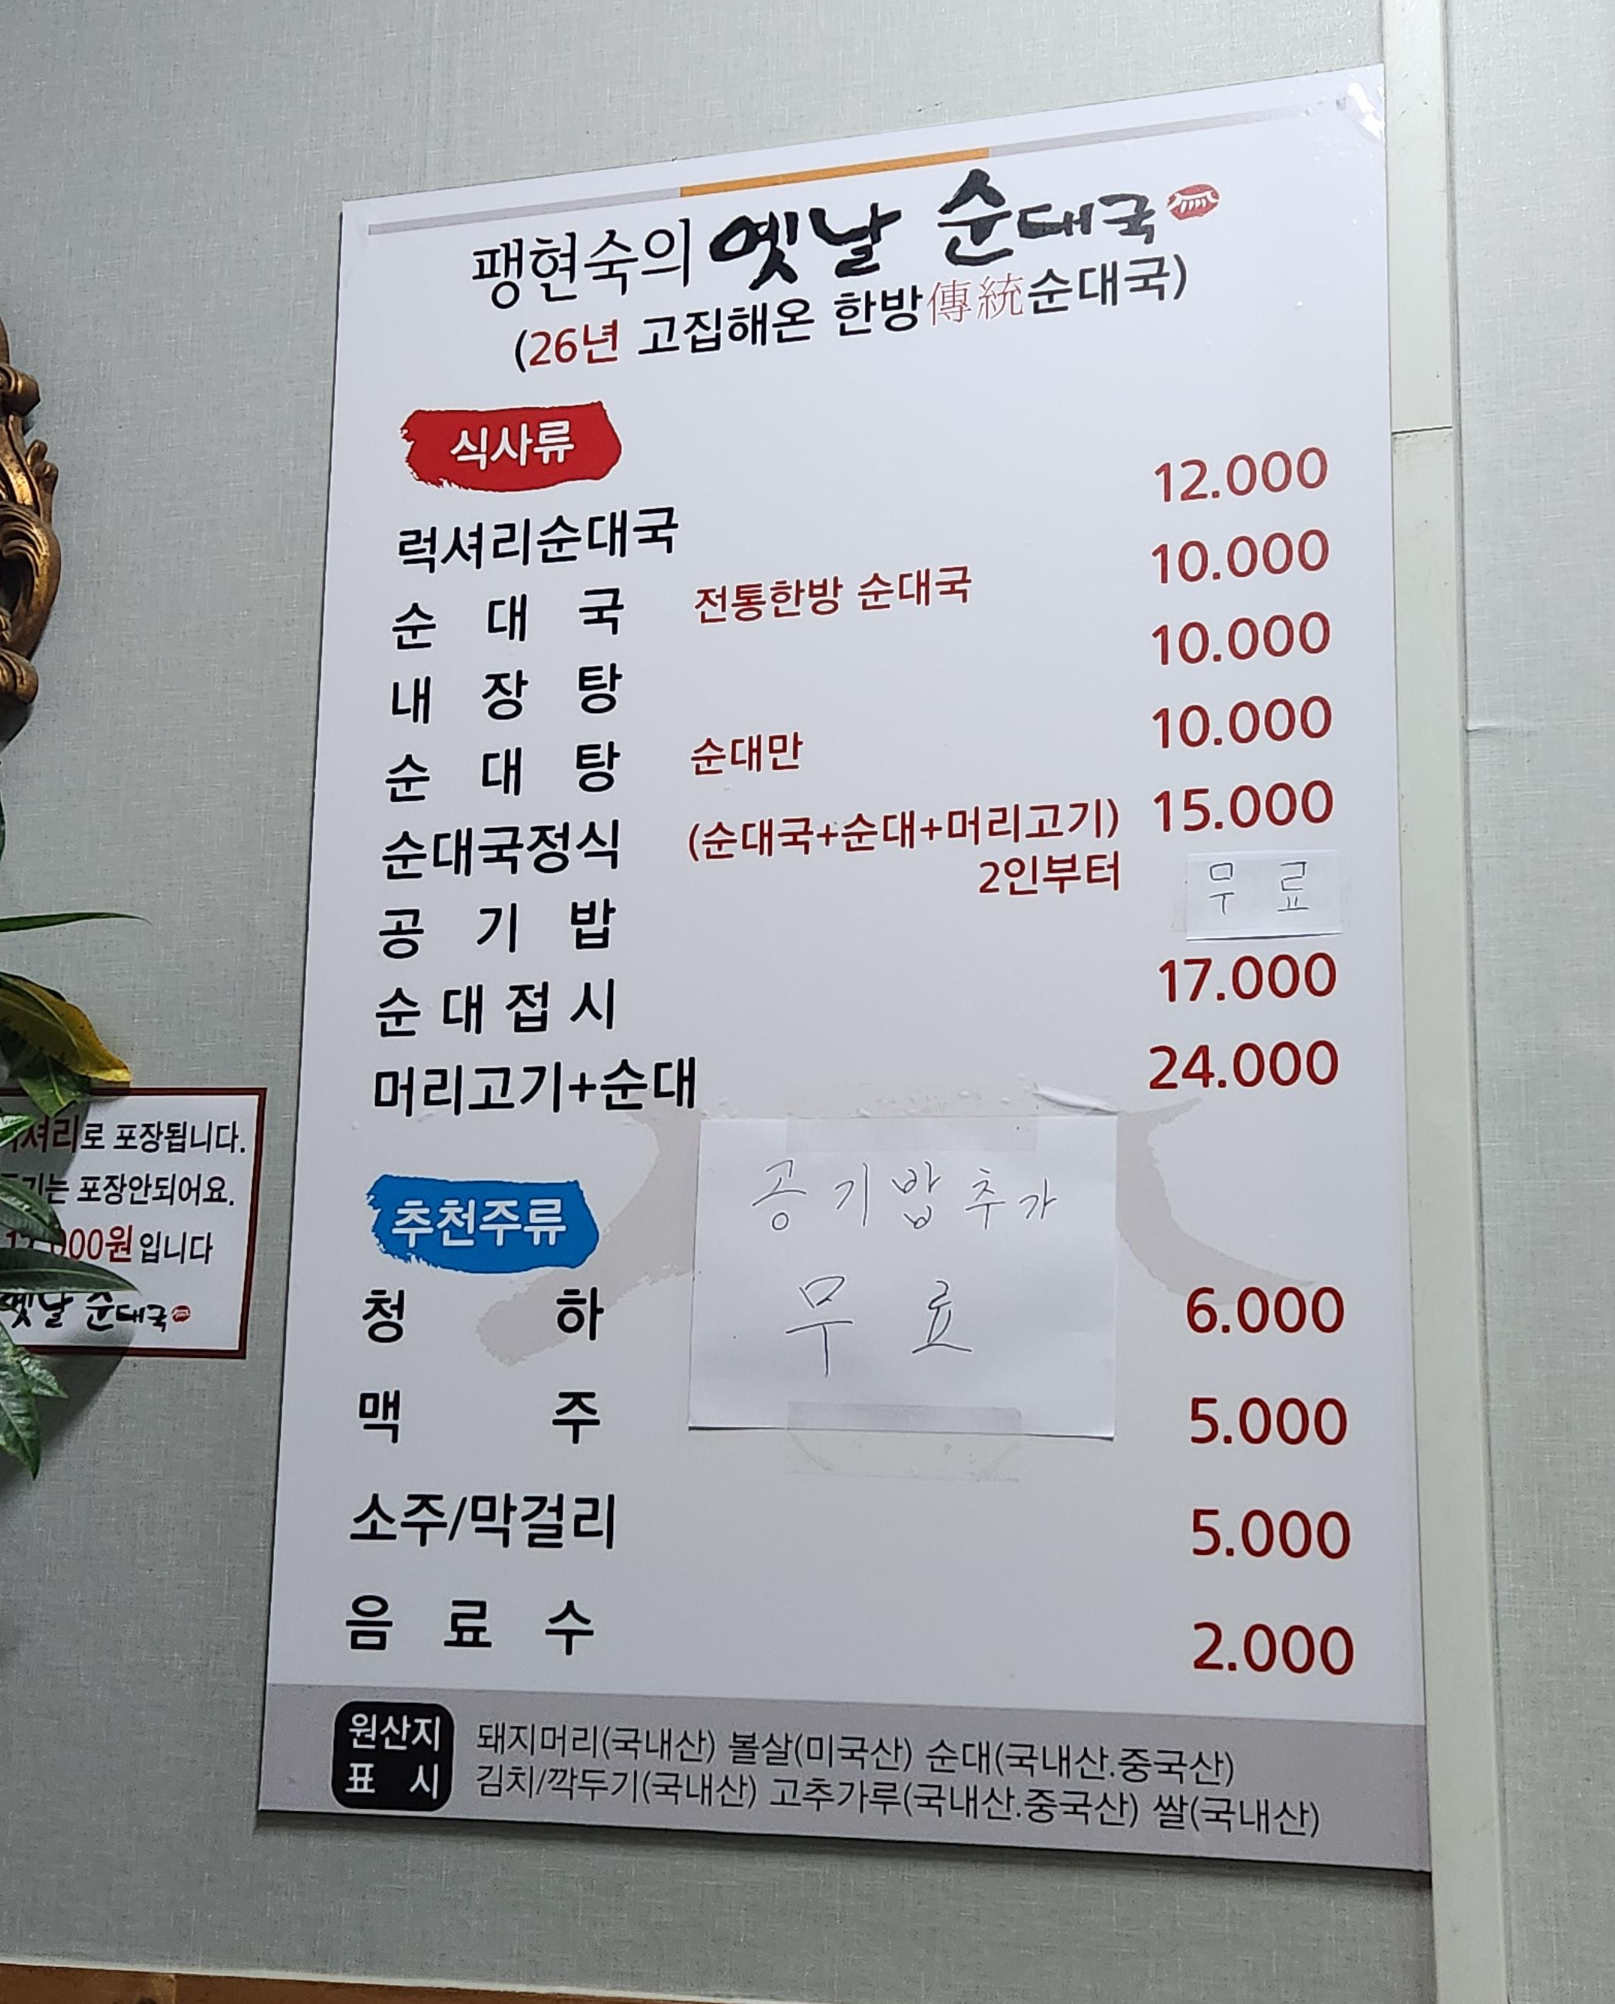 팽현숙의 옛날 순대국
(26년 고집해온 한방傳統순대국)
식사류
럭셔리순대국 12.000
순 대 국 전통한방 순대국 10.000
내 장 탕 10.000
순 대 탕 순대만 10.000
순대국정식 (순대국+순대+머리고기) 15.000
2인부터
공 기 밥 무 료
순 대 접 시 17.000
머리고기+순대 24.000
공기밥추가
무 료
추천주류
청 하 6.000
맥 주 5.000
소주/막걸리 5.000
음 료 수 2.000
원산지
표 시
돼지머리(국내산) 볼살(미국산) 순대(국내산.중국산)
김치/깍두기(국내산) 고추가루(국내산.중국산) 쌀(국내산)
셔리로 포장됩니다.
포장안되어요.
000원입니다
옛날 순대국